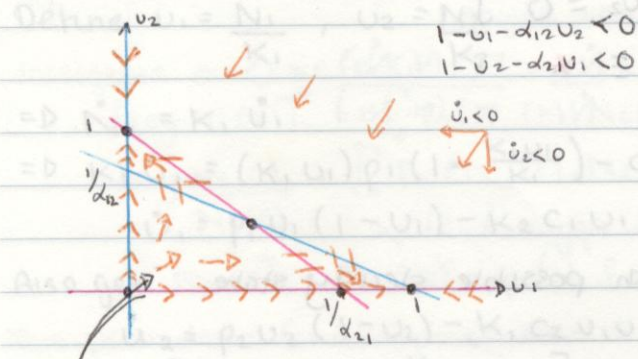 u2
1-u1-α12u2<0
1-u2-α21u1<0
1
u̇1<0
u̇2<0
1/α12
u1
1/α21
1